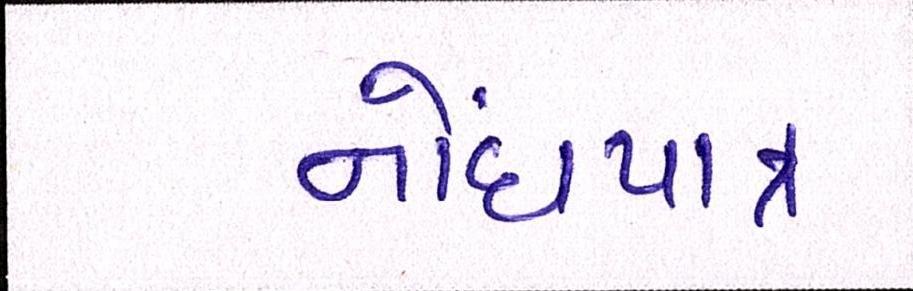 નોંધપાત્ર